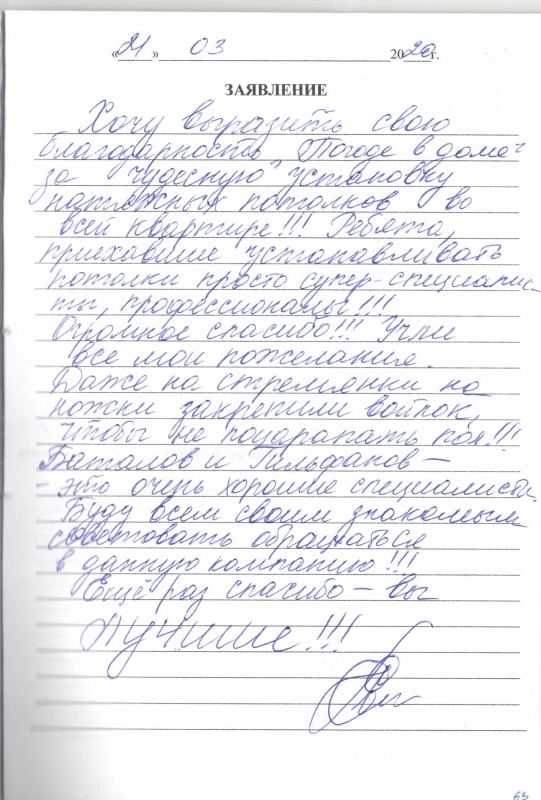 «21» 03 2020г.
ЗАЯВЛЕНИЕ
Хочу выразить свою
благодарность "Погоде в доме"
за чудесную установку
натяжных потолков во
всей квартире!!! Ребята,
приехавшие устанавливать
потолки просто супер-специалис-
ты, профессионалы!!!
Огромное спасибо!!! Учли
все мои пожелания.
Даже на стремянки на
ножки закрепили войлок,
чтобы не поцарапать пол!!!
Баталов и Гильфанов –
– это очень хорошие специалисты.
Буду всем своим знакомым
советовать обращаться
в данную компанию!!!
Ещё раз спасибо – вы
лучшие!!!
63